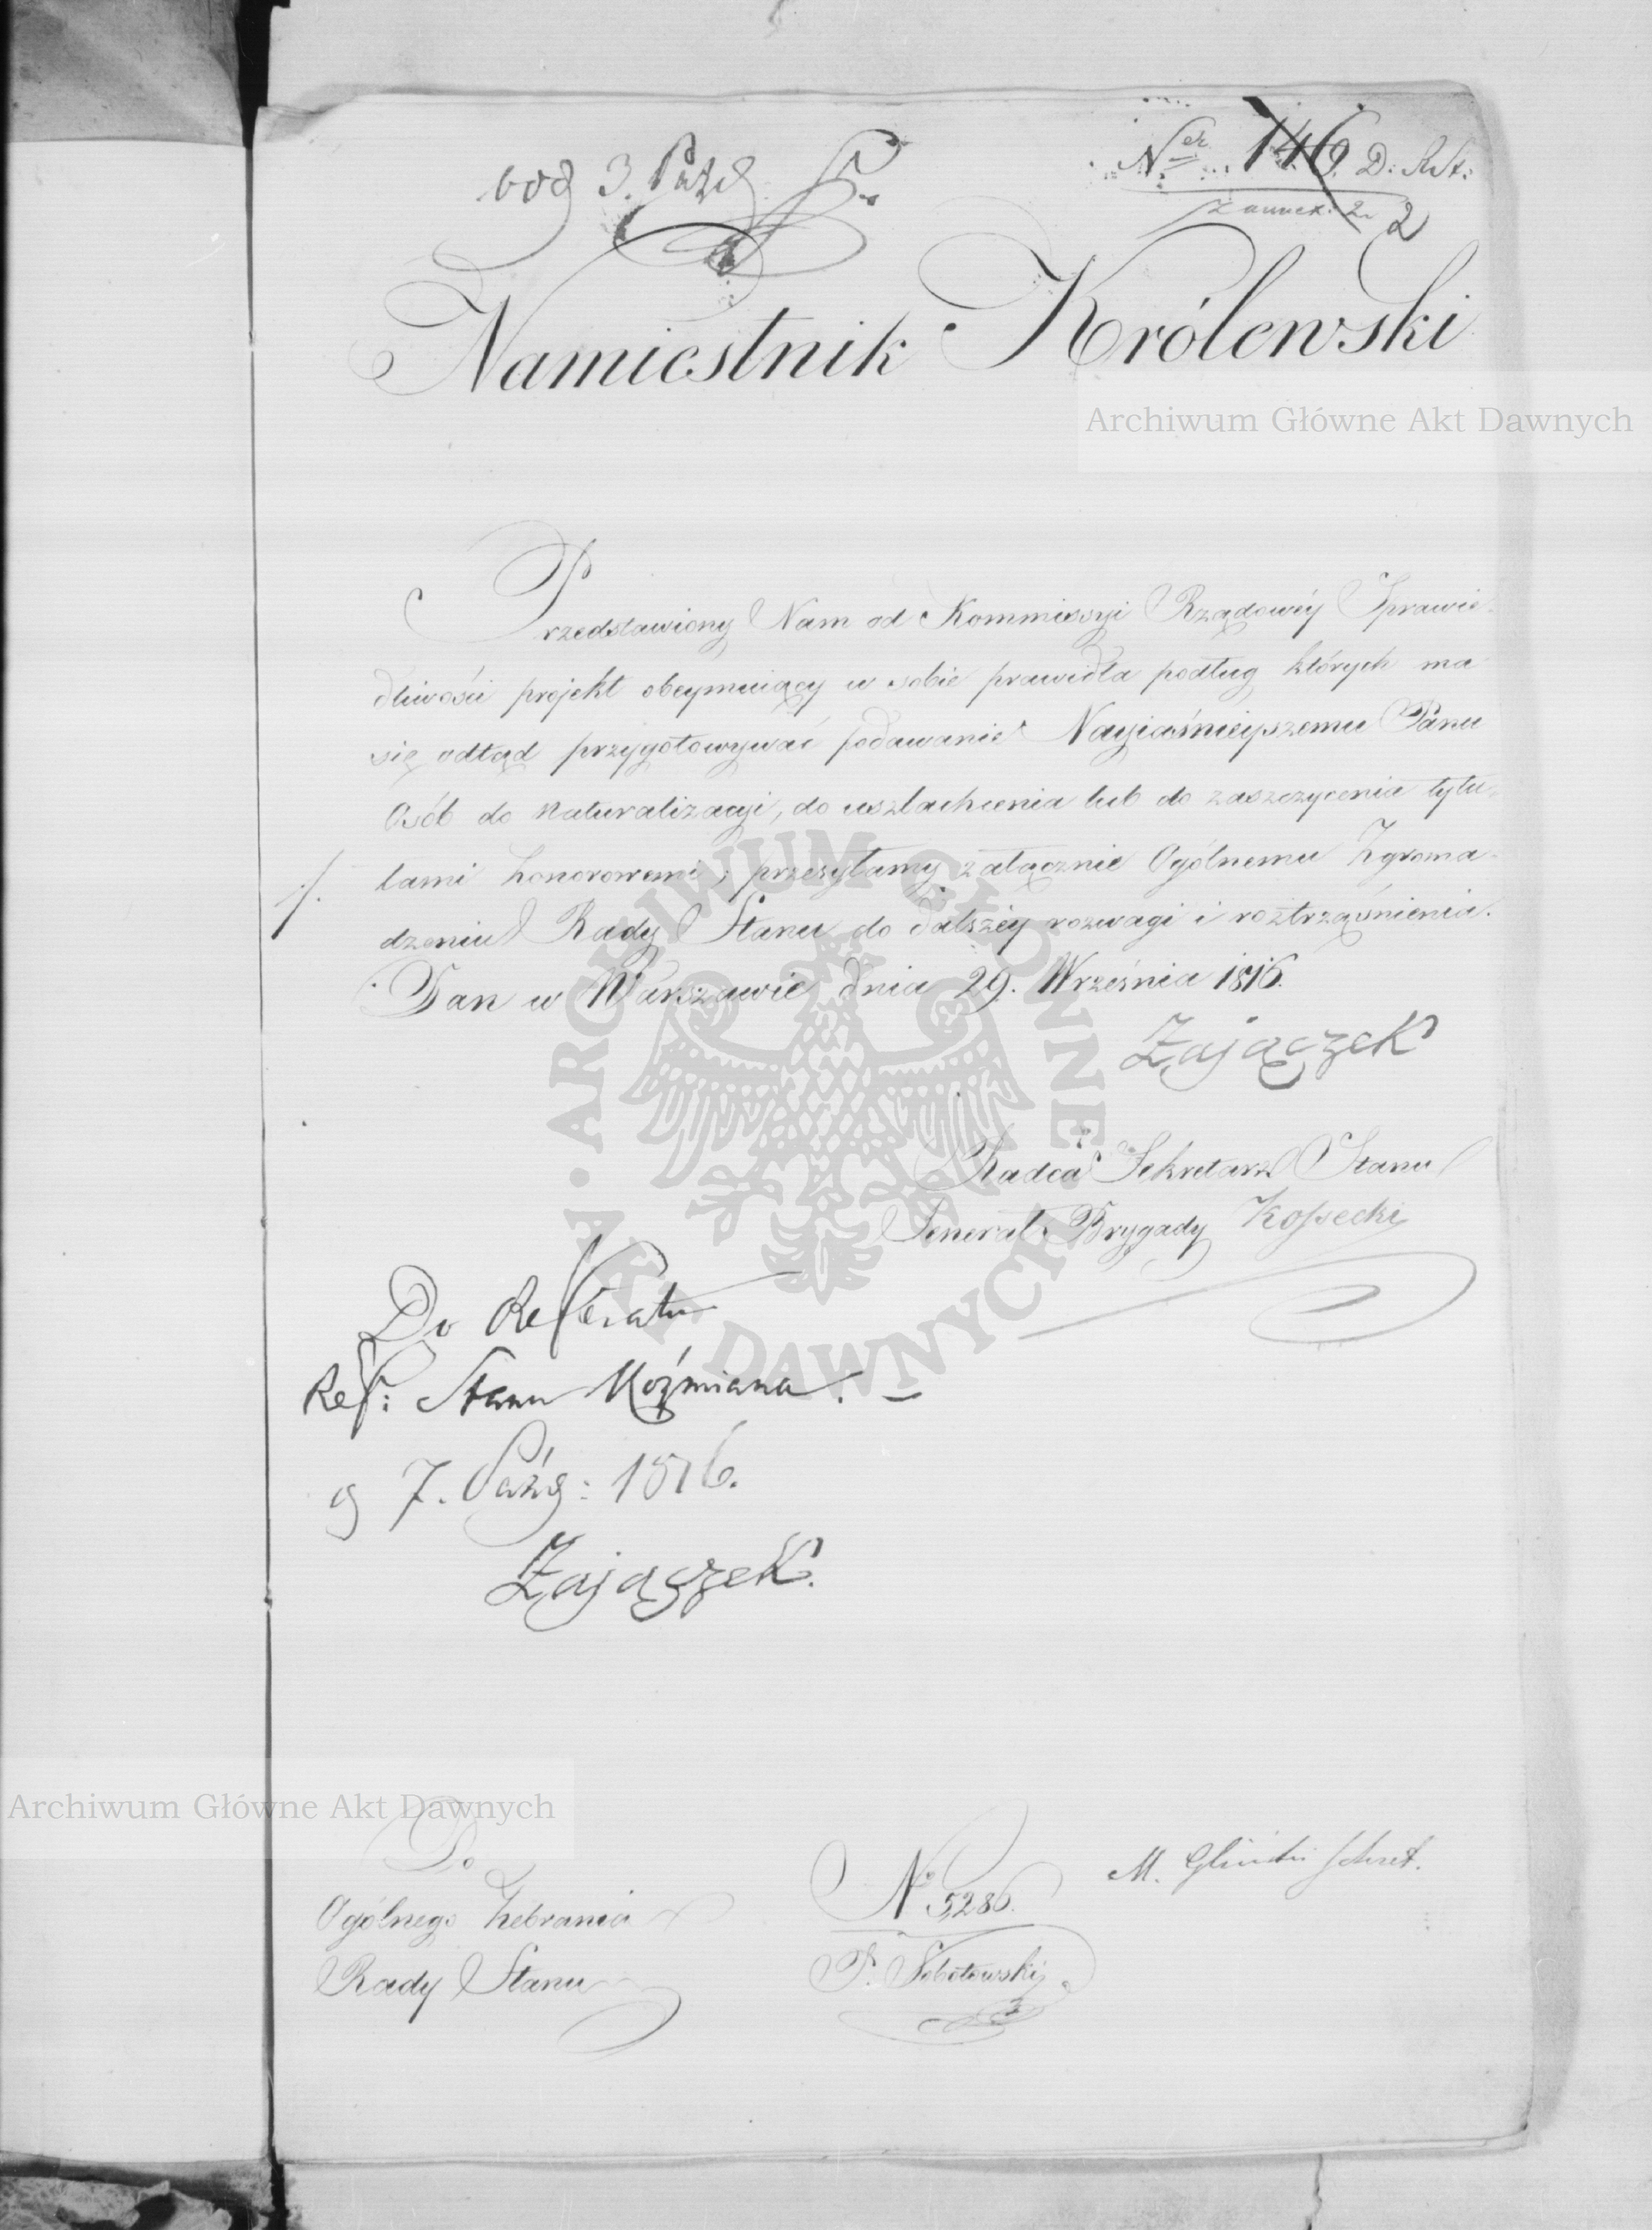 odd 3. Paźd
Ner 146. D: R.St:
z annex: 2.
2
Namiestnik Królewski
Archiwum Główne Akt Dawnych
Przedstawiony Nam od Kommissyi Rządowéy Sprawie-
dliwości projekt obeymuiący w sobie prawidła podług których ma
się odtąd przygotowywać podawanie Nayiaśnieyszemu Panu
Osób do Naturalizacyi, do uszlachcenia lub do zaszczycenia tytu-
łami honorowemi; przesyłamy załącznie Ogólnemu Zgroma-
dzeniu Rady Stanu do dalszéy rozwagi i roztrząśnienia.
Dan w Warszawie dnia 29. Września 1816.
Zajączek
Radca Sekretarz Stanu
Generał Brygady Kossecki
Do Referatu
Ref: Stanu Koźmiana. —
d 7. Paźd: 1816.
Zajączek.
Archiwum Główne Akt Dawnych
Do
Ogólnego Zebrania
Rady Stanu
N 5286.
Sobolewski
M. Gliński sekret.
ARCHIWUM GŁÓWNE AKT DAWNYCH